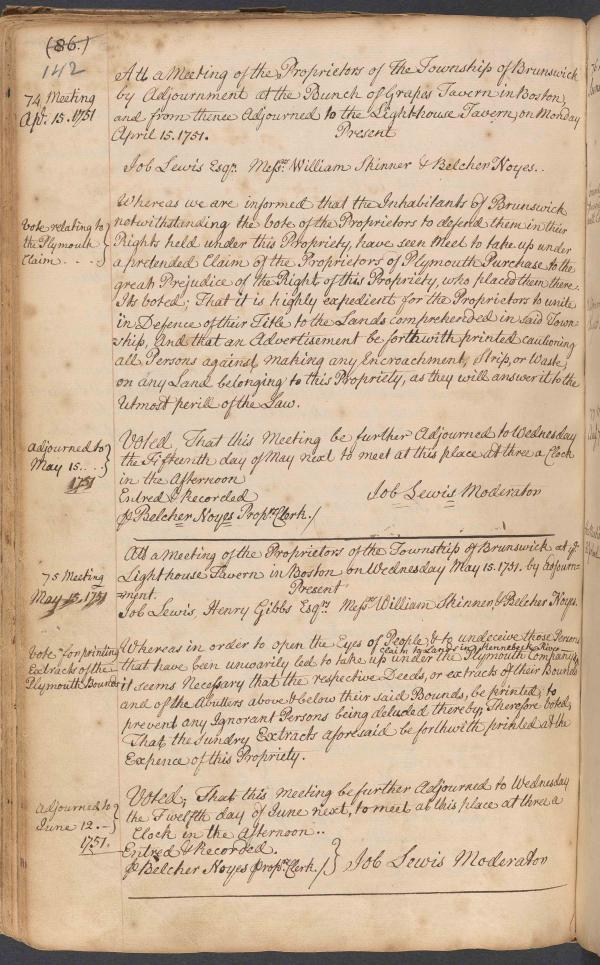 (86.)
142
74 Meeting
Apr. 15. 1751
Att a Meeting of the Proprietors of the Township of Brunswick
by Adjournment at the Bunch of Grapes Tavern in Boston,
and from thence Adjourned to the Lighthouse Tavern, on Monday
April 15. 1751. Present
Job Lewis Esqr. Messrs. William Skinner & Belcher Noyes..
Vote relating to
the Plymouth
Claim. . . .
Whereas we are informed that the Inhabitants of Brunswick
notwithstanding the Vote of the Proprietors to defend them in their
Rights held under this Propriety, have seen meet to take up under
a pretended Claim of the Proprietors of Plymouth Purchase to the
great Prejudice of the Right of this Propriety, who placed them there.
Its voted; That it is highly expedient for the Proprietors to unite
in Defence of their Title to the Lands comprehended in said Town-
ship, And that an Advertisement be forthwith printed cautioning
all Persons against making any Encroachment, Strip, or Waste,
on any Land belonging to this Propriety, as they will answer it to the
Utmost perill of the Law.
Adjourned to
May 15. . .
1751
Voted, That this Meeting be further Adjourned to Wednesday
the Fifteenth day of May next to meet at this place at three a Clock
in the Afternoon
Entred & Recorded
Job Lewis Moderator
p Belcher Noyes Proprs. Clerk. /
75 Meeting
May 15. 1751
Att a meeting of the Proprietors of the Township of Brunswick at ye.
Lighthouse Tavern in Boston on Wednesday May 15. 1751. by Adjourn=
ment. Present
Job Lewis, Henry Gibbs Esqrs. Messrs. William Skinner & Belcher Noyes.
Vote for printing
Extracts of the
Plymouth Bounds
Whereas in order to open the Eyes of People, & to undeceive those Persons
claim to Lands in Kennebeck River
that have been unwarily led to take up under the Plymouth Company's
it seems Necessary that the respective Deeds, or extracts of their Bounds
and of the abutters above & below their said Bounds, be printed, to
prevent any Ignorant Persons being deluded thereby; Therefore voted,
That the sundry Extracts aforesaid be forthwith printed at the
Expence of this Propriety.
Adjourned to
June 12. -
1751.
Voted; That this Meeting be further Adjourned to Wednesday
the Twelfth day of June next, to meet at this place at three a
Clock in the Afternoon..
Entred & Recorded.
p Belcher Noyes Proprs. Clerk. / Job Lewis Moderator